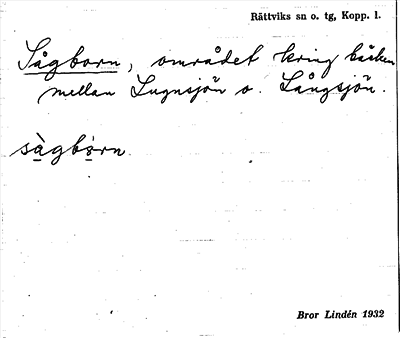 Rättviks sn o. tg, Kopp. l.
Sågborn, området kring bäcken
mellan Lugnsjön o. Långsjön.
sàgbòrn
Bror Lindén 1932